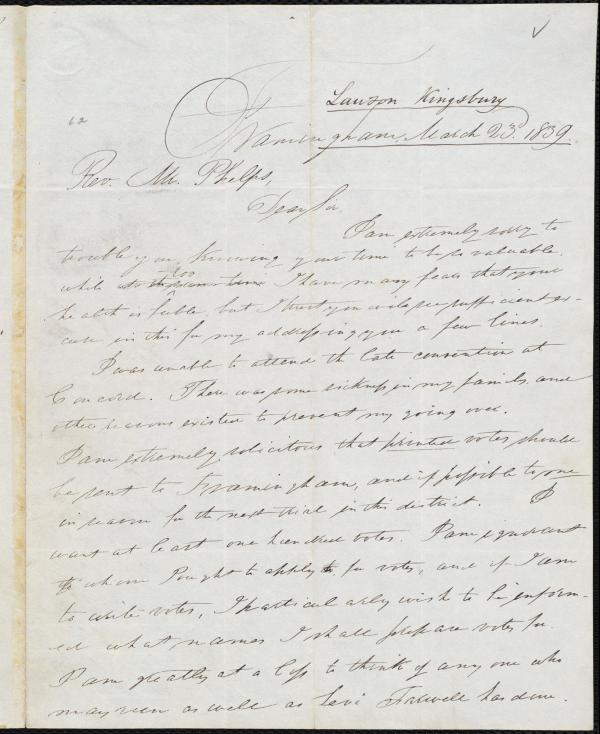 62
Lawson Kingsbury
Framingham, March 23d. 1839.
Rev. Mr. Phelps,
Dear Sir.
I am extremely sorry to
trouble you, knowing your time to be so valuable.
while I have many fears that your
too
health is feeble, but I trust you will see sufficient ex-
cuse in this for my addressing you a few lines.
I was unable to attend the late convention at
Concord. There was some sickness in my family, and
other reasons existed to prevent my going over.
I am extremely solicitous that printed votes should
be sent to Framingham, and if possible to me
in season for the next trial in this district. I
want at least one hundred votes. I am ignorant
to whom I ought to apply for votes, and if I am
to write votes, I particularly wish to be inform-
ed what names I shall prepare votes for.
I am greatly at a loss to think of any one who
may run as well as Levi Farwell has done.